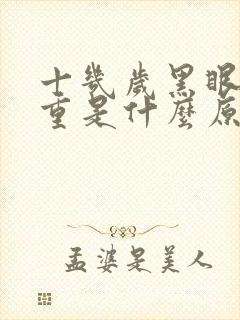 十幾歲黑眼
重是什麼原
孟婆是美人